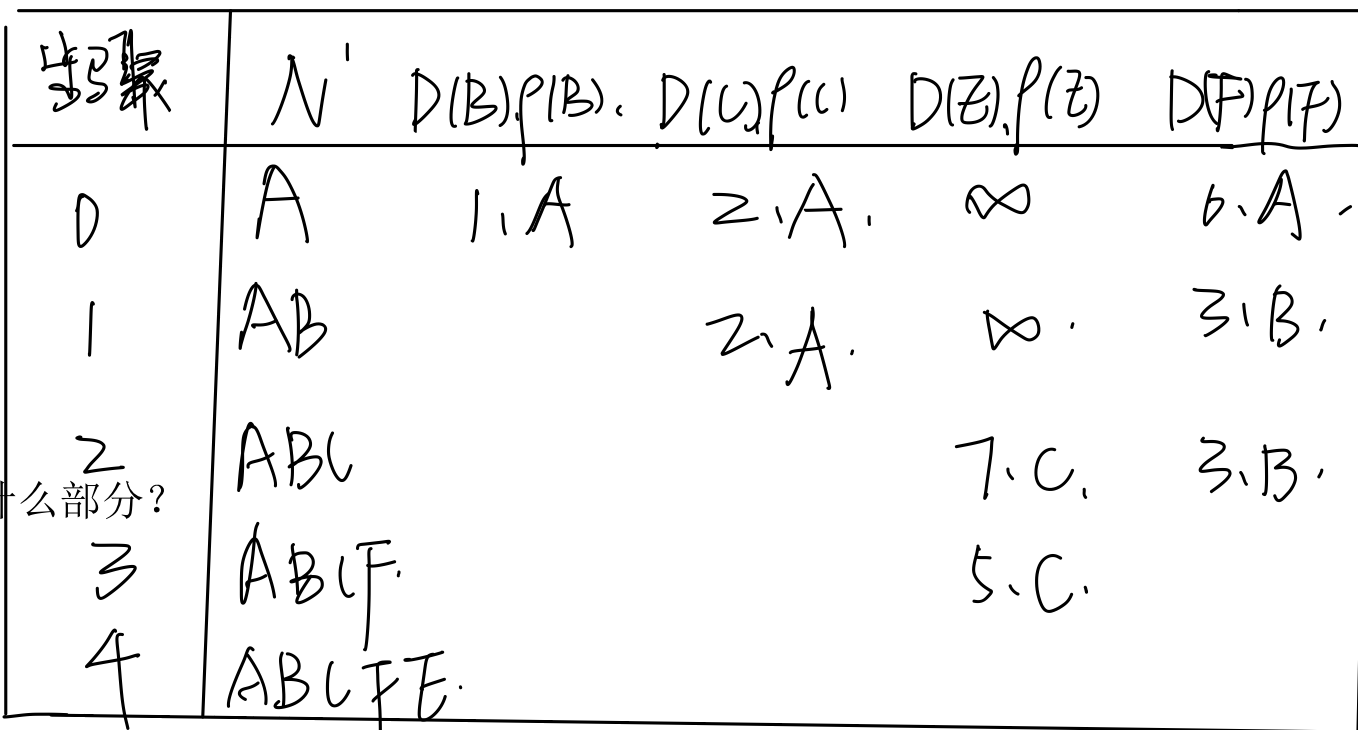 步骤 N' D(B),P(B). D(C),P(C) D(E),P(E) D(F)P(F)
0 A 1、A 2、A. ∞ 6、A.
1 AB 2、A. ∞. 3、B.
2 ABC 7、C. 3、B.
什么部分?
3 ABCF. 5、C.
4 ABCFE.